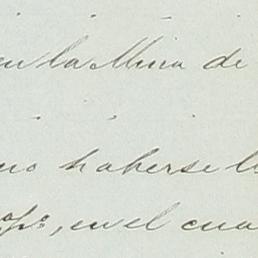 en la Mina de
no haberse le
en el cua